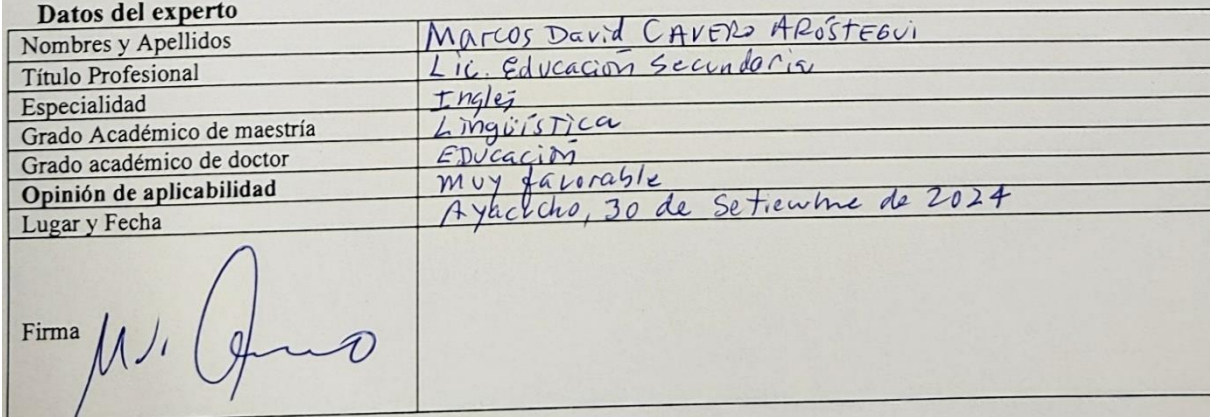 Datos del experto
Nombres y Apellidos Marcos David CAVERO ARÓSTEGUI
Título Profesional Lic. Educación Secundaria
Especialidad Inglés
Grado Académico de maestría Lingüística
Grado académico de doctor EDUcación
Opinión de aplicabilidad muy favorable
Lugar y Fecha Ayacucho, 30 de Setiembre de 2024
Firma